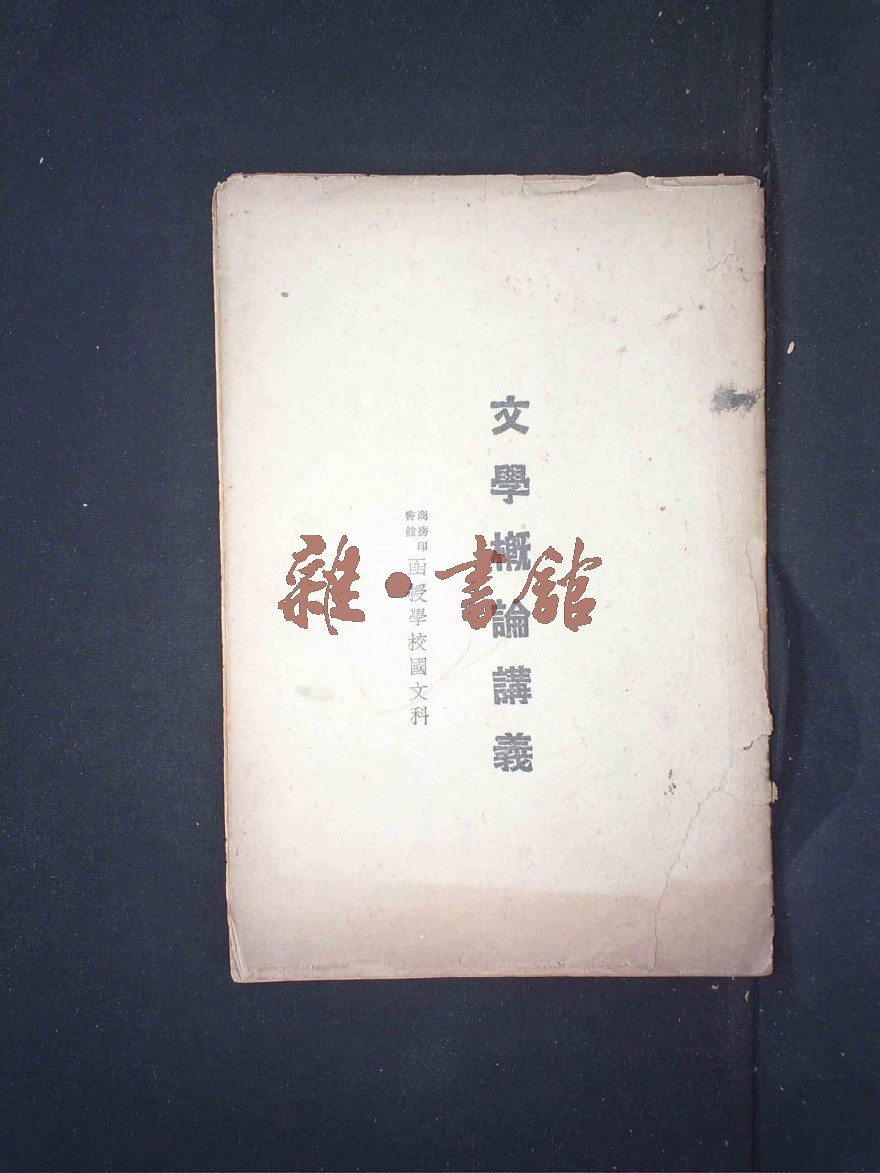 文學概論講義
商務印書館
函授學校國文科
雜·書館